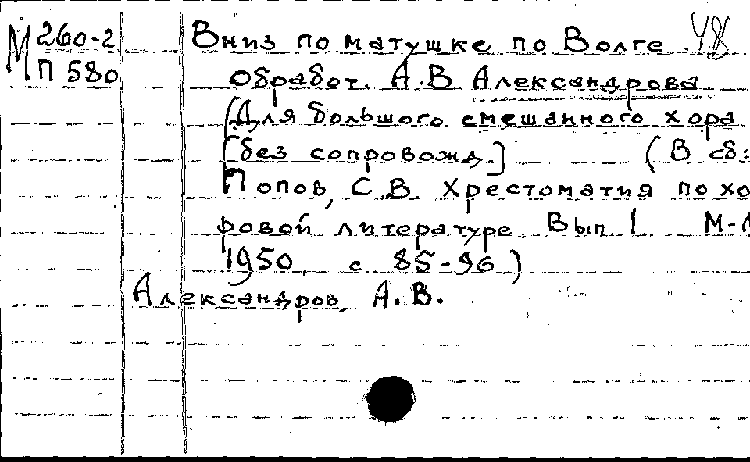 М 260-2
П 580
Вниз по матушке по Волге 48
обработ. А.В Александрова
(Для большого смешанного хора
[без сопровожд.] (В сб:
Попов, С.В. Хрестоматия по хо
ровой литературе Вып 1 М-Л
1950 с 85-96)
Александров, А.В.